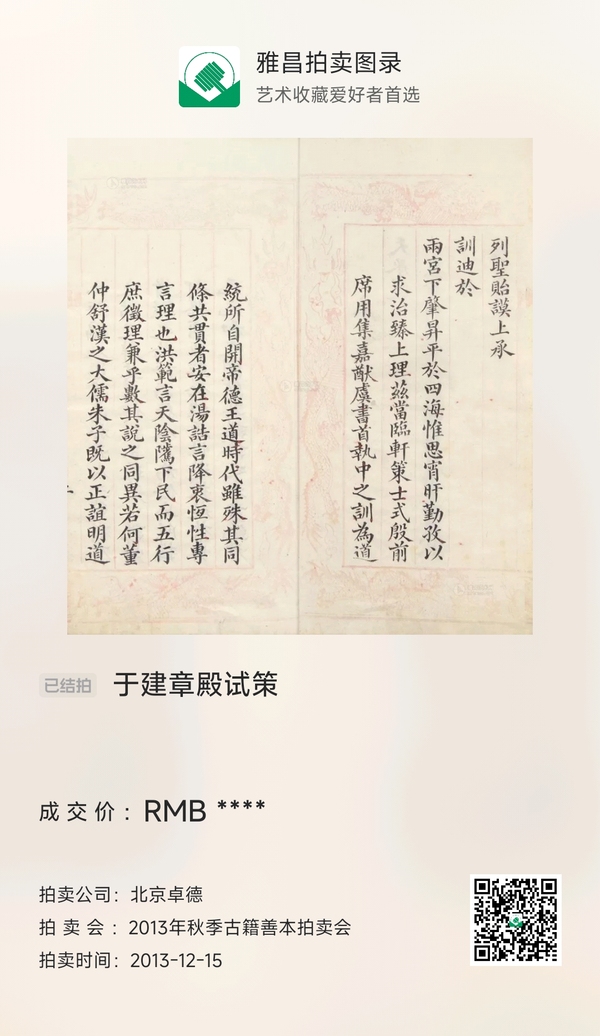 雅昌拍卖图录
艺术收藏爱好者首选
列聖貽謨上承
訓迪於
兩宮下肇昇平於四海惟思宵旰勤孜以
求治臻上理茲當臨軒策士式殷前
席用集嘉猷虞書首執中之訓為道
統所自開帝德王道時代雖殊其同
條共貫者安在湯誥言降衷恒性專
言理也洪範言天陰隲下民而五行
庶徵理兼乎數其說之同異若何董
仲舒漢之大儒朱子既以正誼明道
已结拍
于建章殿试策
成交价：RMB ****
拍卖公司：北京卓德
拍卖会：2013年秋季古籍善本拍卖会
拍卖时间：2013-12-15